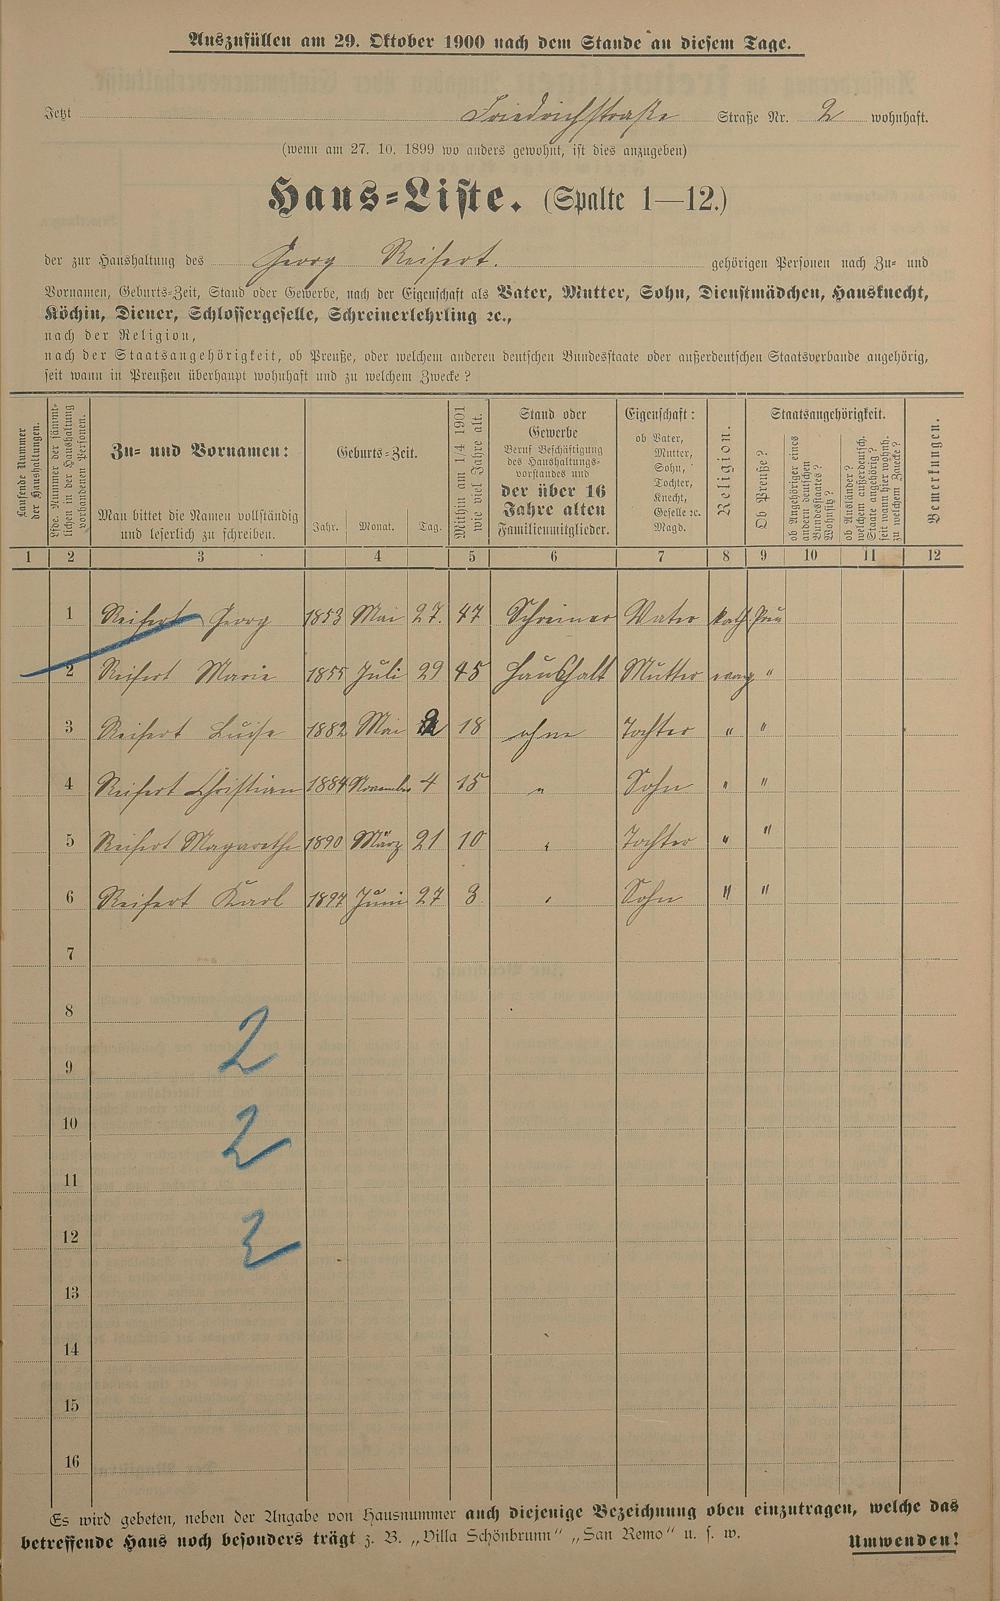 Auszufüllen am 29. Oktober 1900 nach dem Stande an diesem Tage.
Jetzt Friedrichstraße Straße Nr. 2 wohnhaft.
(wenn am 27. 10. 1899 wo anders gewohnt, ist dies anzugeben)
Haus-Liste. (Spalte 1—12.)
der zur Haushaltung des Georg Reifert. gehörigen Personen nach Zu- und
Vornamen, Geburts-Zeit, Stand oder Gewerbe, nach der Eigenschaft als Vater, Mutter, Sohn, Dienstmädchen, Hausknecht,
Köchin, Diener, Schlossergeselle, Schreinerlehrling ꝛc.,
nach der Religion,
nach der Staatsangehörigkeit, ob Preuße, oder welchem anderen deutschen Bundesstaate oder außerdeutschen Staatsverbande angehörig,
seit wann in Preußen überhaupt wohnhaft und zu welchem Zwecke?
Laufende Nummer
der Haushaltungen.
Lfde. Nummer der sämmt-
lichen in der Haushaltung
vorhandenen Personen.
Zu- und Vornamen:
Man bittet die Namen vollständig
und leserlich zu schreiben.
Geburts-Zeit.
Jahr. Monat. Tag.
Mithin am 1/4 1901
wie viel Jahre alt.
Stand oder
Gewerbe
Beruf Beschäftigung
des Haushaltungs-
vorstandes und
der über 16
Jahre alten
Familienmitglieder.
Eigenschaft:
ob Vater,
Mutter,
Sohn,
Tochter,
Knecht,
Geselle ꝛc.
Magd.
Religion.
Staatsangehörigkeit.
Ob Preuße?
ob Angehöriger eines
andern deutschen
Bundesstaates?
Wohnsitz?
ob Ausländer?
welchem außerdeutsch.
Staate angehörig?
seit wann hier wohnh.
zu welchem Zwecke?
Bemerkungen.
1 2 3 4 5 6 7 8 9 10 11 12
1 Reifert Georg 1853 Mai 27. 47 Schreiner Vater kath. Preu
2 Reifert Marie 1855 Juli 29 45 Haushalt Mutter evang "
3 Reifert Luise 1882 Mai 18 ohne Tochter " "
4 Reifert Christian 1884 November 4 15 " Sohn " "
5 Reifert Magarethe 1890 März 21 10 " Tochter " "
6 Reifert Karl 1897 Juni 27 3 " Sohn " "
7
8
2
9
10
2
11
12
2
13
14
15
16
Es wird gebeten, neben der Angabe von Hausnummer auch diejenige Bezeichnung oben einzutragen, welche das
betreffende Haus noch besonders trägt z. B. „Villa Schönbrunn" „San Remo" u. s. w.
Umwenden!